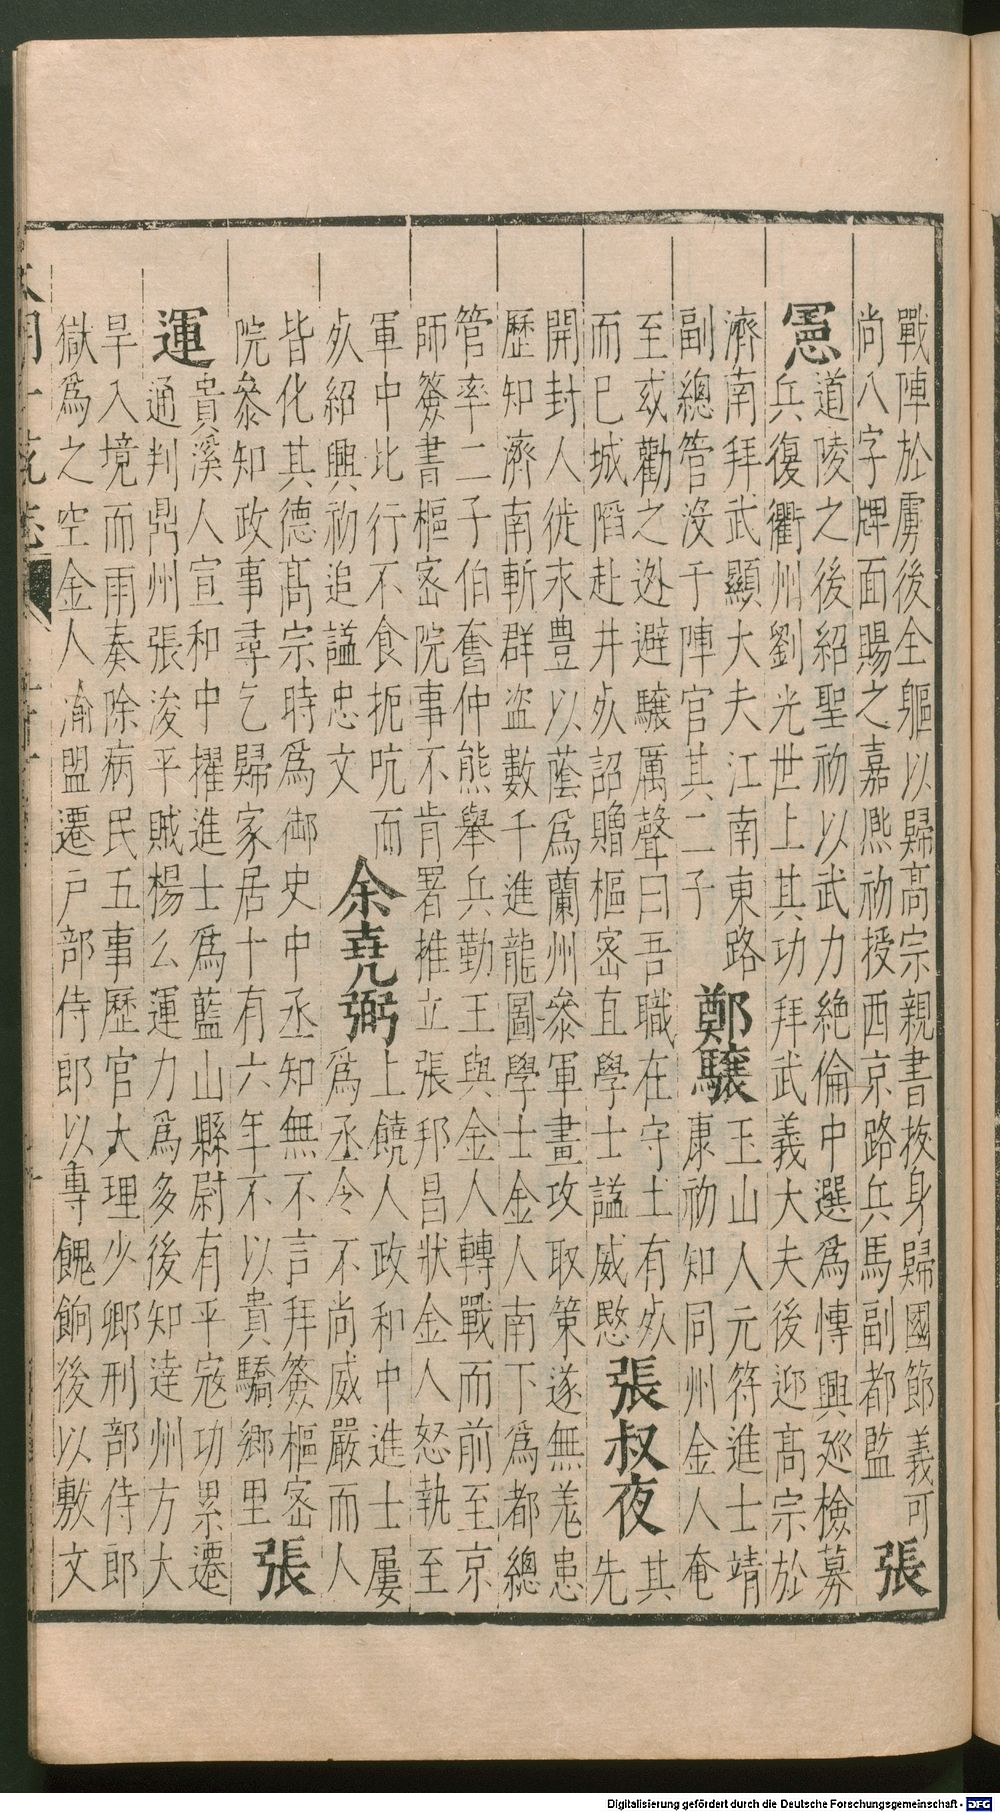 戰陣於虜後全軀以歸高宗親書挍身歸國節義可
尚八字牌面賜之嘉熈初授西京路兵馬副都監張
憲道陵之後紹聖初以武力絶倫中選爲慱興廵檢募
兵復衢州劉光世上其功拜武義大夫後迎髙宗於
濟南拜武顯大夫江南東路鄭驤玉山人元符進士靖
副總管沒于陣官其二子康初知同州金人奄
至或勸之迯避驤厲聲曰吾職在守土有死其
而巳城䧟赴井死詔贈樞宻直學士謚威愍張叔夜先
開封人徙永豊以蔭爲蘭州叅軍畫攻取策遂無羗患
歷知濟南斬群盗數千進龍圖學士金人南下爲都總
管率二子伯奮仲熊舉兵勤王與金人轉戰而前至京
師簽書樞宻院事不肯署推立張邦昌狀金人怒執至
軍中比行不食扼吭而余堯弼上饒人政和中進士屢
死紹興初追謚忠文爲丞令不尚威嚴而人
皆化其德髙宗時爲御史中丞知無不言拜簽樞宻
院叅知政事尋乞歸家居十有六年不以貴驕鄉里張
運貴溪人宣和中擢進士爲藍山縣尉有平宼功累遷
通判鼎州張浚平賊楊么運力爲多後知逹州方大
旱入境而雨奏除病民五事歷官大理少卿刑部侍郎
獄爲之空金人渝盟遷户部侍郎以專餽餉後以敷文
Digitalisierung gefördert durch die Deutsche Forschungsgemeinschaft - DFG